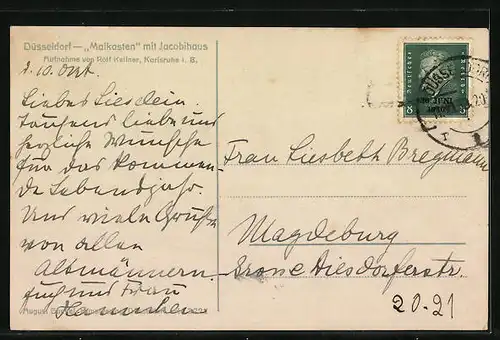 Düsseldorf — „Malkasten" mit Jacobihaus
Aufnahme von Rolf Kellner, Karlsruhe i. B.
Liebes Liesslein.
Tausend liebe und
herzliche Wünsche
für das kommen-
de Lebensjahr.
Und viele Grüße
von allen
Altmännern.
und Frau
Frau Liesbeth Bregmann
Magdeburg
Grosse Diesdorferstr.
20-21
Deutsches Reich
8
August